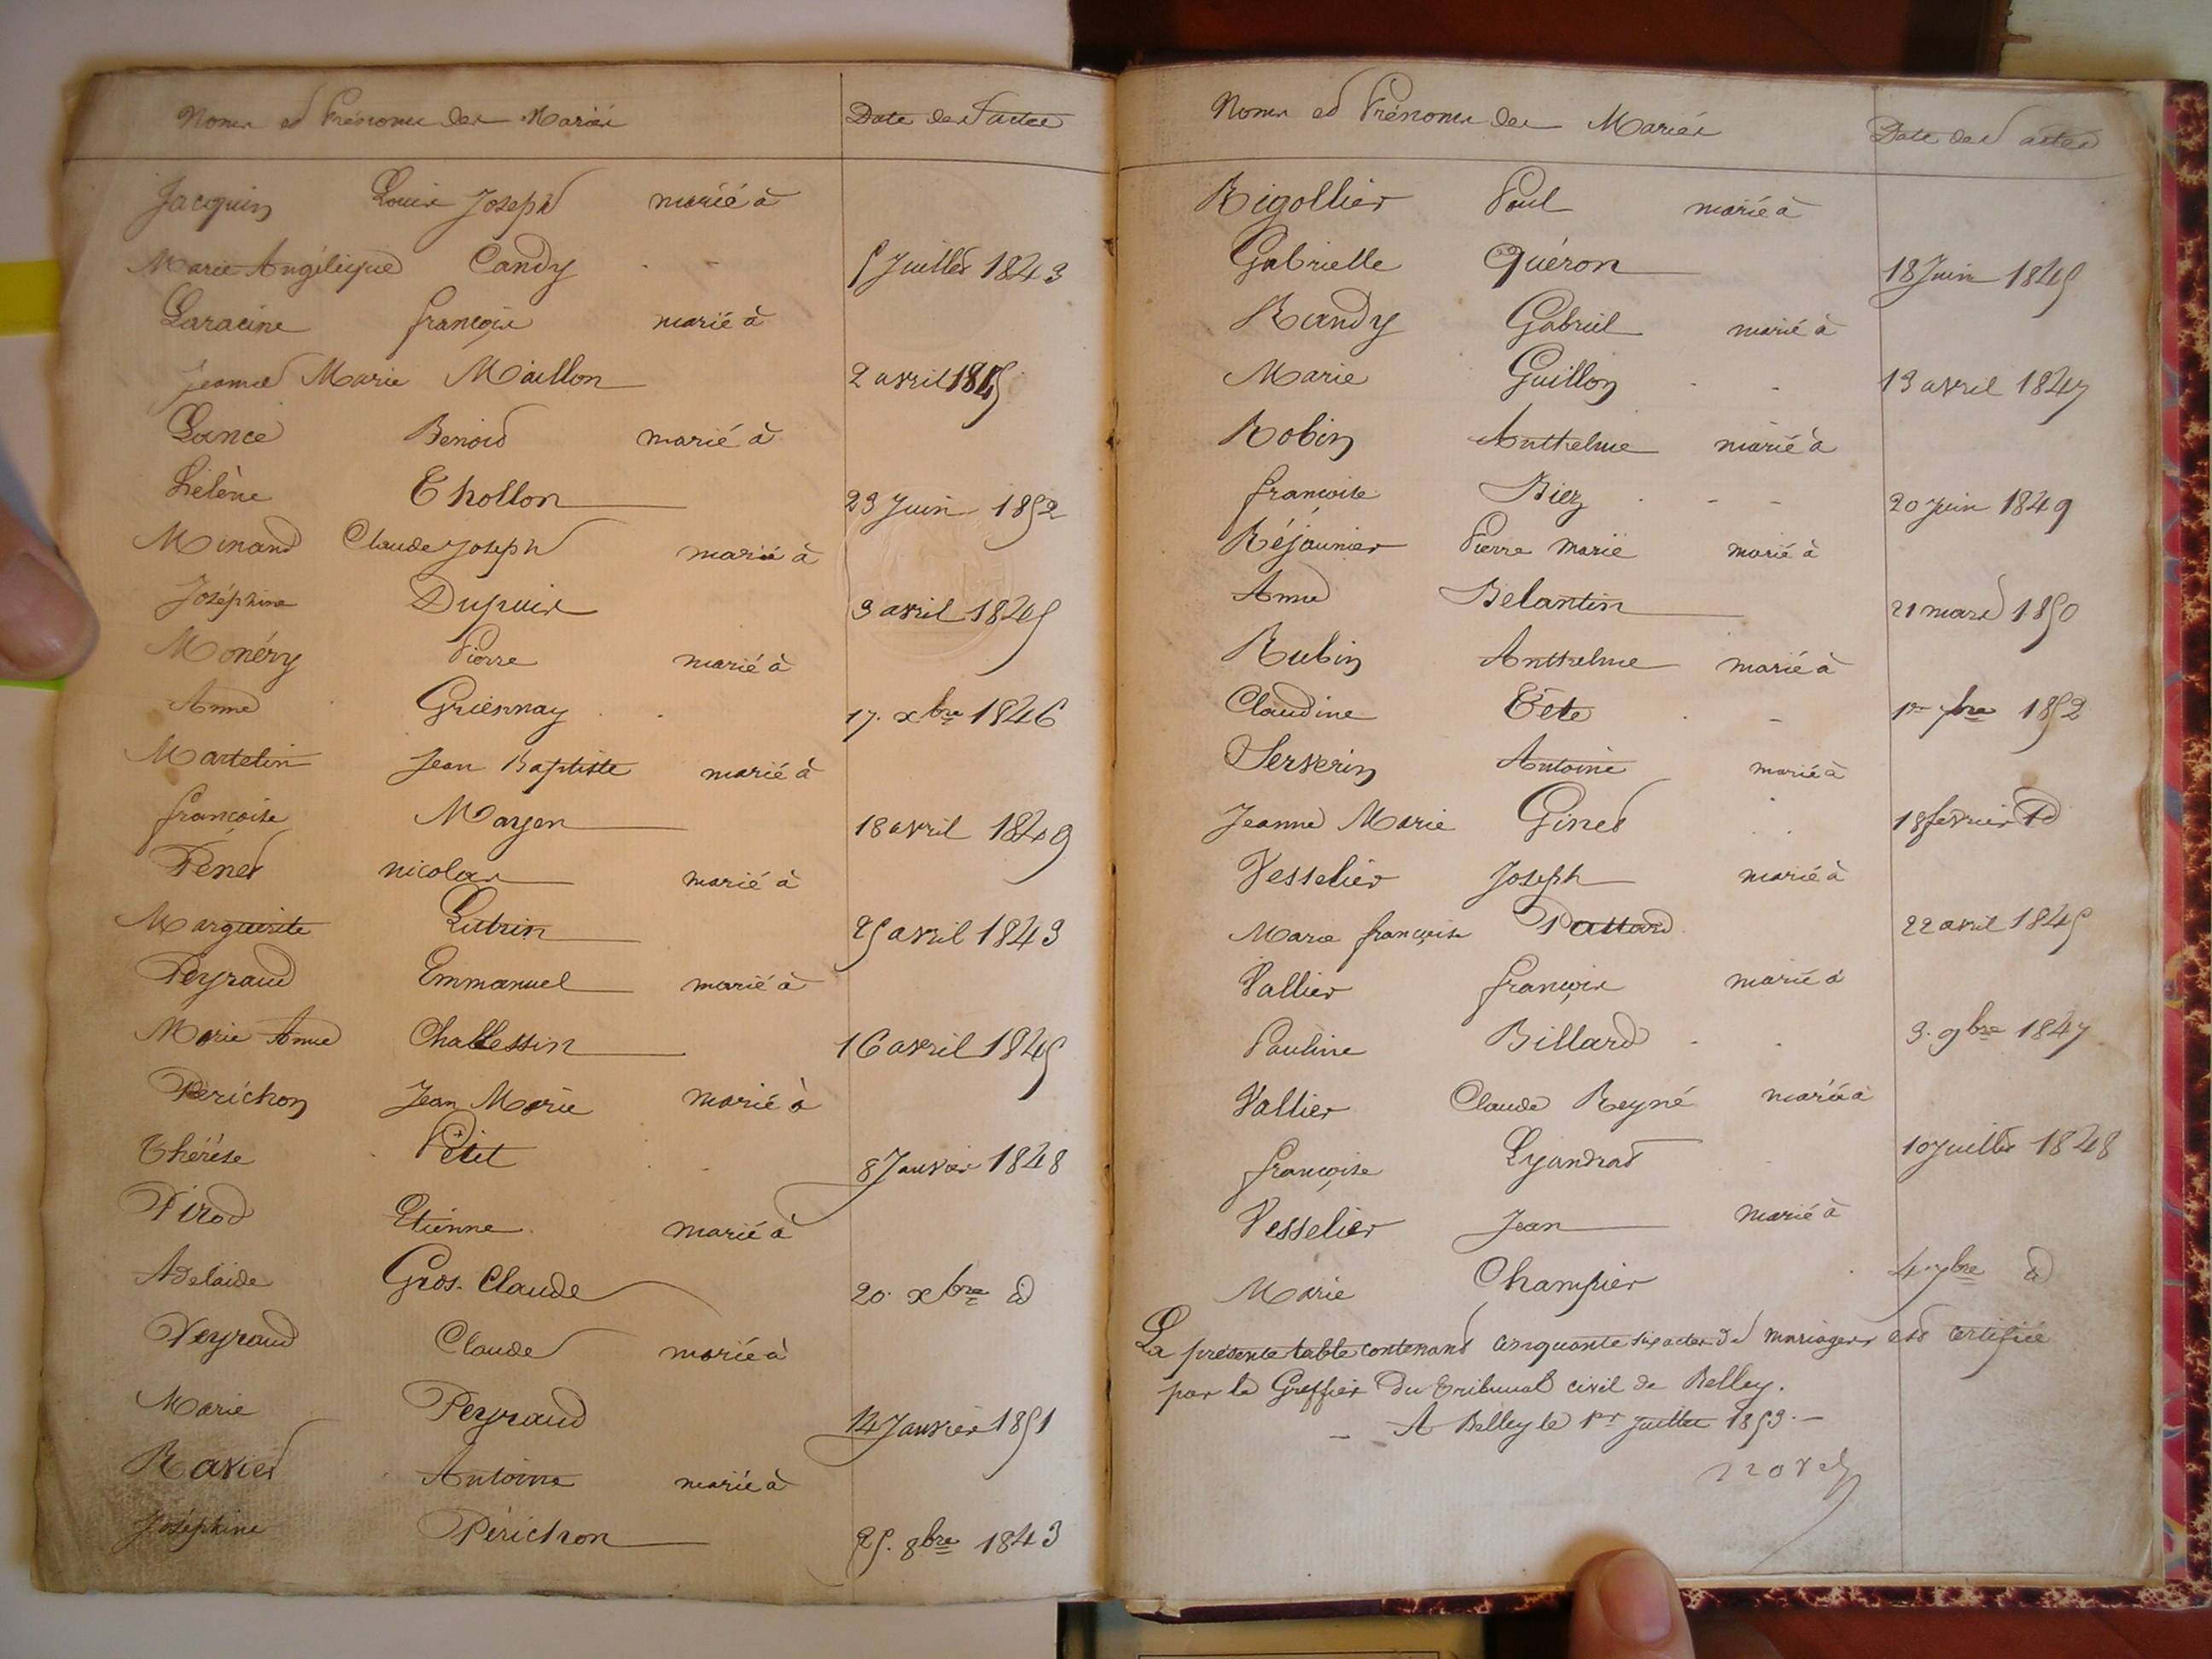 Noms et Prénoms des Mariés Date des actes
Jacquin Louis Joseph marié à
Marie Angélique Candy 5 Juillet 1843
Laracine françois marié à
Jeanne Marie Maillon 2 avril 1845
Lance Benoit marié à
hélène Thollon 23 Juin 1852
Minand Claude Joseph marié à
Joséphine Dupuis 3 avril 1845
Monéry Pierre marié à
Anne Griennay 17. xbre 1846
Martelin Jean Baptiste marié à
françoise Mayen 18 avril 1849
Penet nicolas marié à
Marguerite Lutrin 25 avril 1843
Peyraud Emmanuel marié à
Marie Anne Challessin 16 avril 1845
Périchon Jean Marie marié à
Thérèse Petit 8 Janvier 1848
Pirod Etienne marié à
Adelaide Gros-Claude 20. xbre d
Veyraud Claude marié à
Marie Peyraud 14 Janvier 1851
Ravier Antoine marié à
Joséphine Périchon 25. 8bre 1843
Noms et Prénoms des Mariés Date des actes
Rigollier Paul marié à
Gabrielle Quéron 18 Juin 1845
Randy Gabriel marié à
Marie Guillon 13 avril 1847
Robin Anthelme marié à
françoise Biez 20 juin 1849
Réjaunier Pierre Marie marié à
Anne Belantin 21 mars 1850
Rubin Anthelme marié à
Claudine Tête 1er 7bre 1852
Serverin Antoine marié à
Jeanne Marie Ginet 18 février d
Vesselier Joseph marié à
Marie françoise Pattard 22 avril 1845
Vallier françois marié à
Pauline Billard 3. 9bre 1847
Vallier Claude Reyné marié à
françoise Lyandrat 10 juillet 1848
Vesselier Jean marié à
Marie Champier 4. 7bre d
La présente table contenant cinquante six actes de mariages est certifiée
par le Greffier du tribunal civil de Belley.
A Belley le 1er juillet 1853.